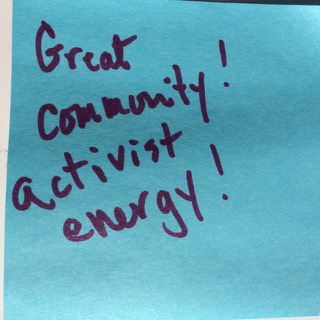 Great
community!
activist
energy!